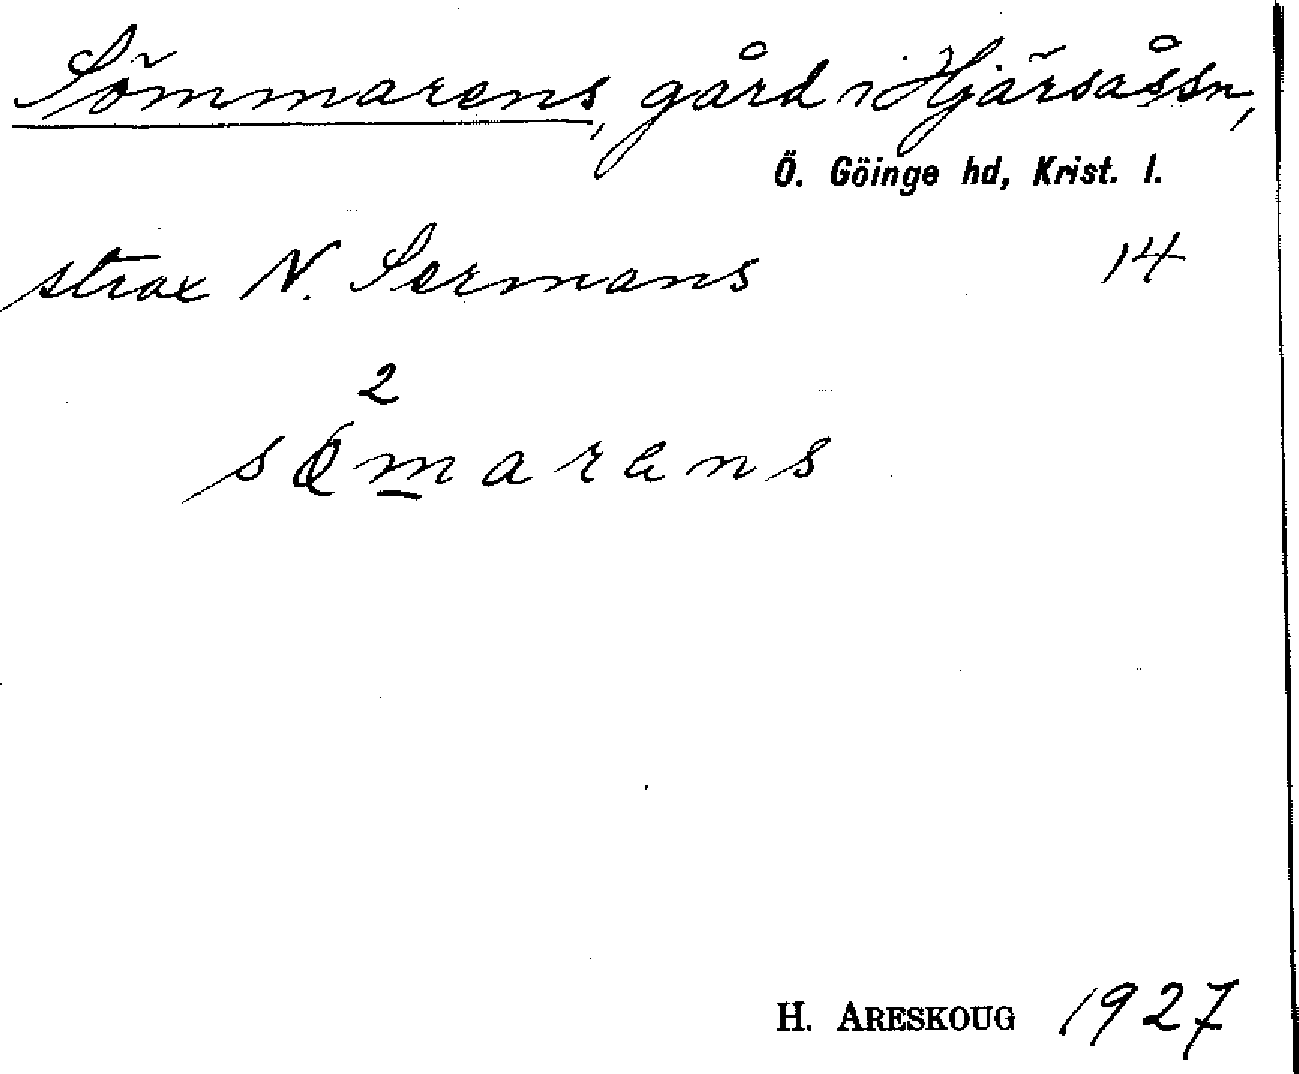 Sömmarens, gård i Hjärsåssn,
Ö. Göinge hd, Krist. l.
strax N. Sermans 14
2
sömarans
H. ARESKOUG 1927